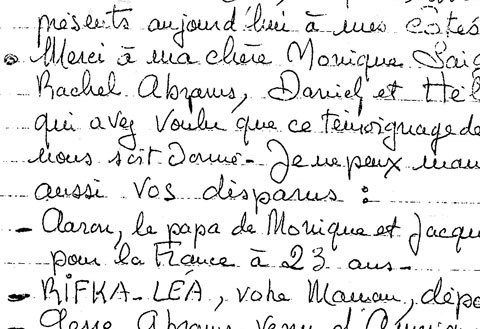 présents aujourd'hui à mes côtés
Merci à ma chère Monique
Rachel Abrams, Daniel et Hél
qui avez voulu que ce témoignage de
nous soit donné - Je ne peux man
aussi vos disparus :
- Aaron, le papa de Monique et Jacqu
pour la France à 23 ans -
- RIFKA-LÉA, votre Maman, dépo
Abrams venu d'